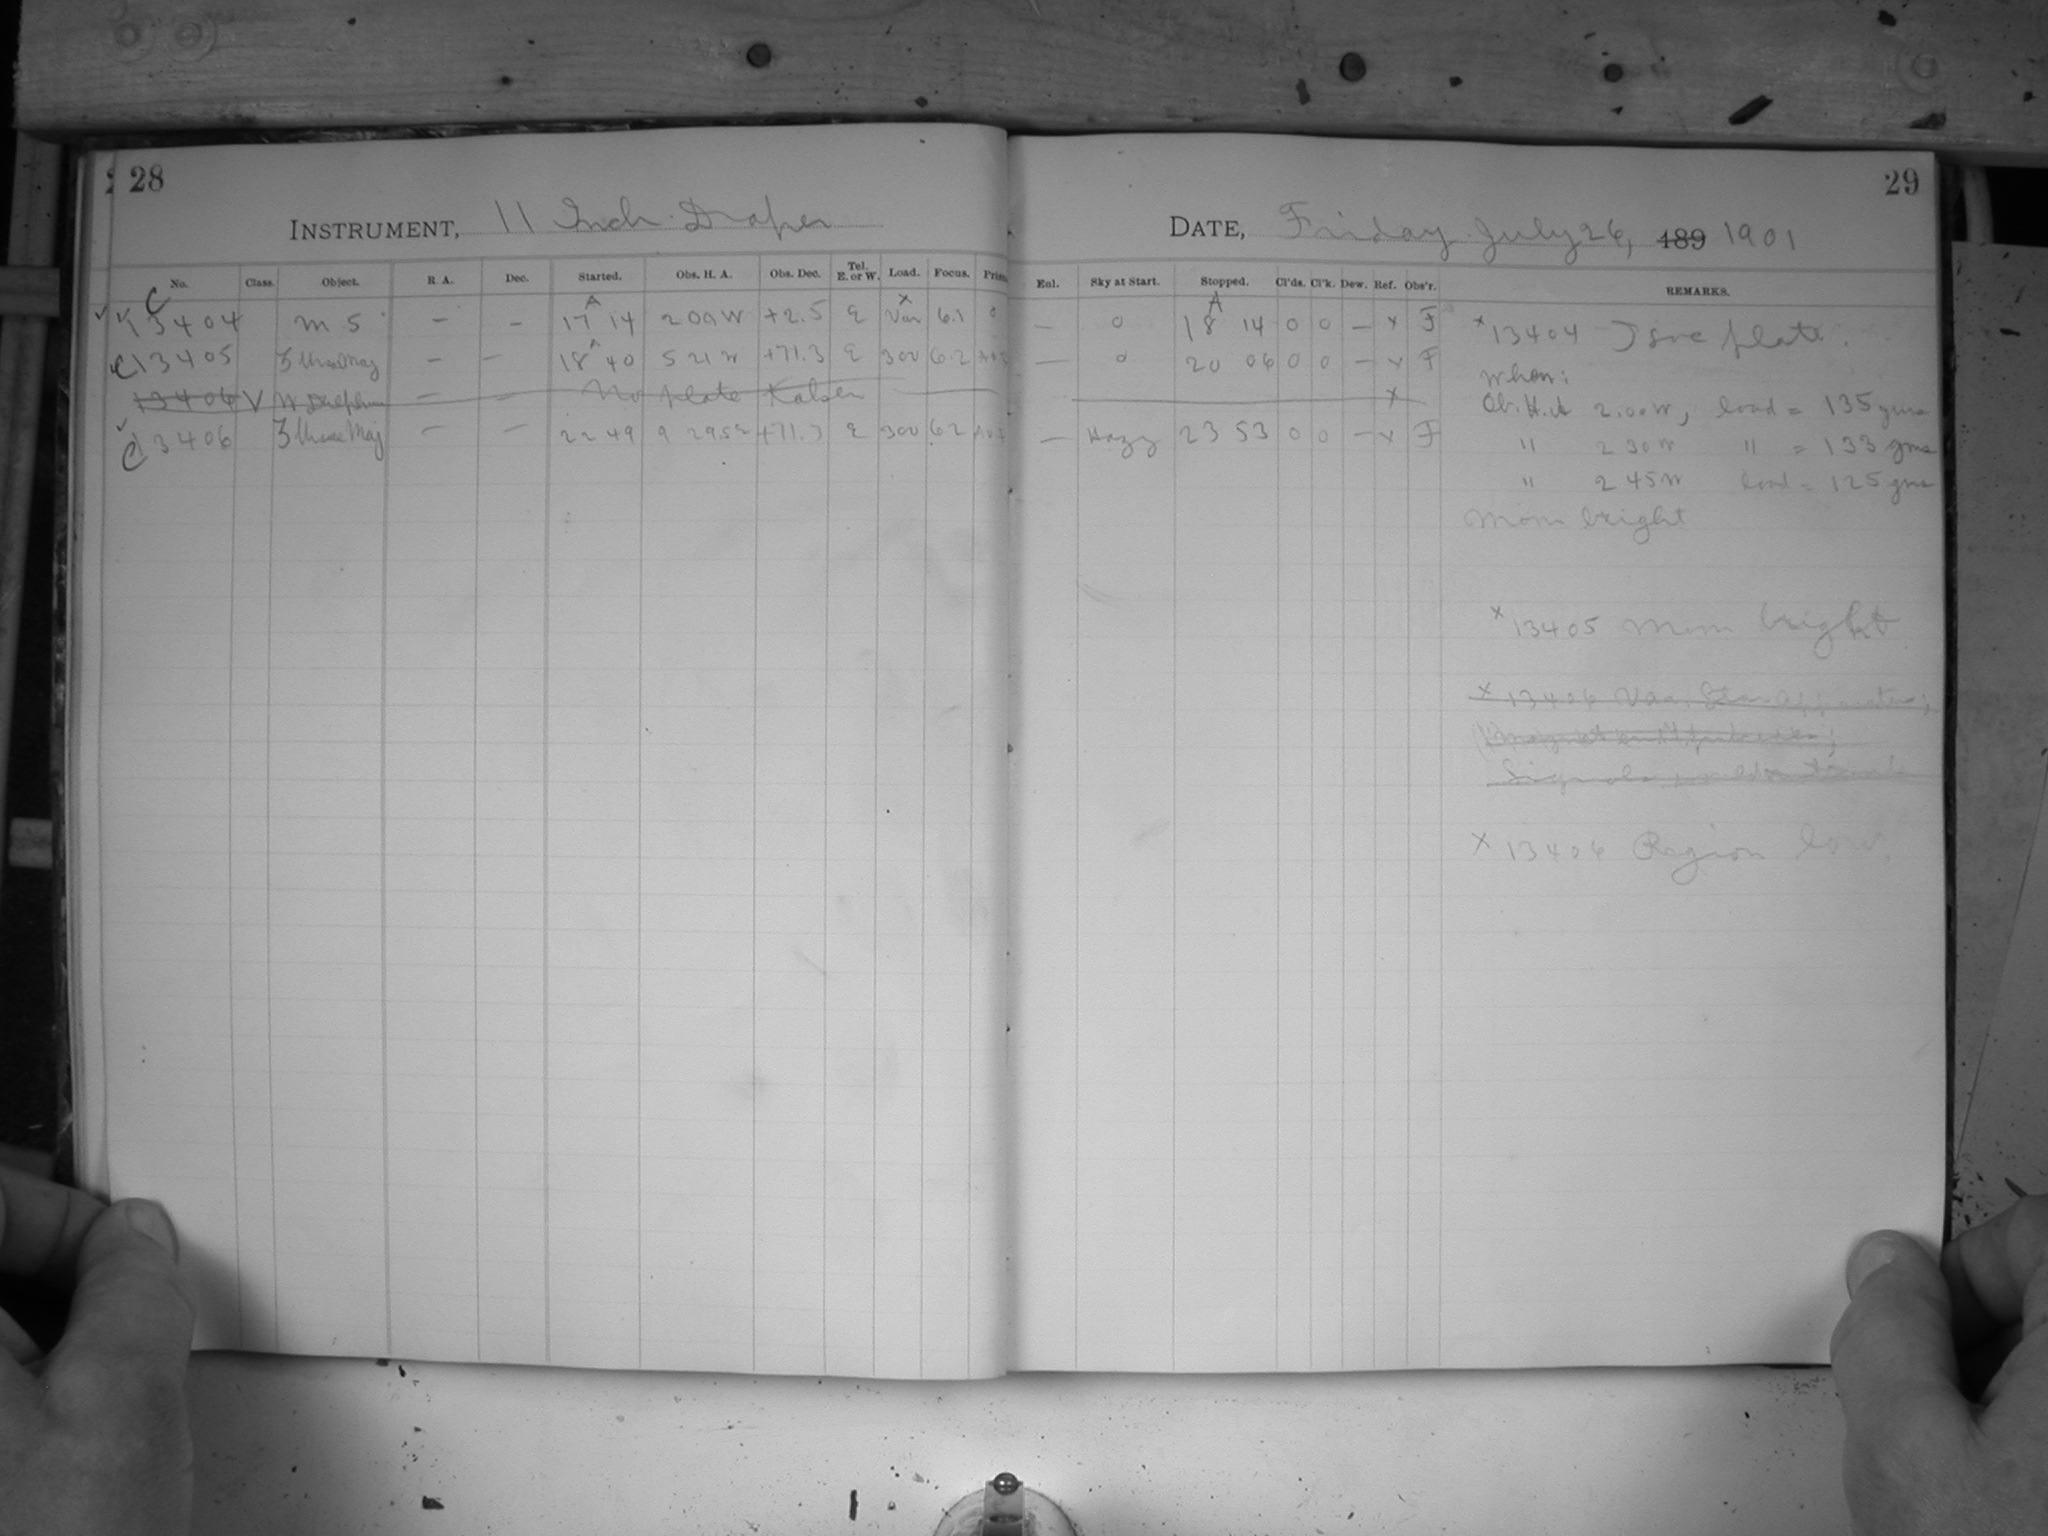 28
INSTRUMENT, 11 Inch Draper
No. Class. Object. R. A. Dec. Started. Obs. H. A. Obs. Dec. Tel. E. or W. Load. Focus.
C A x
13404 M 5 — — 17 14 2 00 W +2.5 E Var 6.1 0
C13405 ζ Ursae Maj — — 18 A 40 5 21 W +71.3 E 300 6.2
13406 V — — No plate taken
C13406 ζ Ursae Maj — — 22 49 9 29.5 +71.3 E 300 6.2
29
DATE, Friday July 26, 189 1901
Enl. Sky at Start. Stopped. Cl'ds. Cl'k. Dew. Ref. Obs'r. REMARKS.
A
— 0 18 14 0 0 — x F
— 0 20 06 0 0 — x F
x
— Hazy 23 53 0 0 — x F
x 13404 plate.
When:
Ob. H. A 2.00 W, load = 135 gms
" 2 30 W " = 133 gms
" 2 45 W load = 125 gms
Moon bright
x 13405 Moon bright
x 13406 Var. Star Apparatus;
x 13406 Region low.